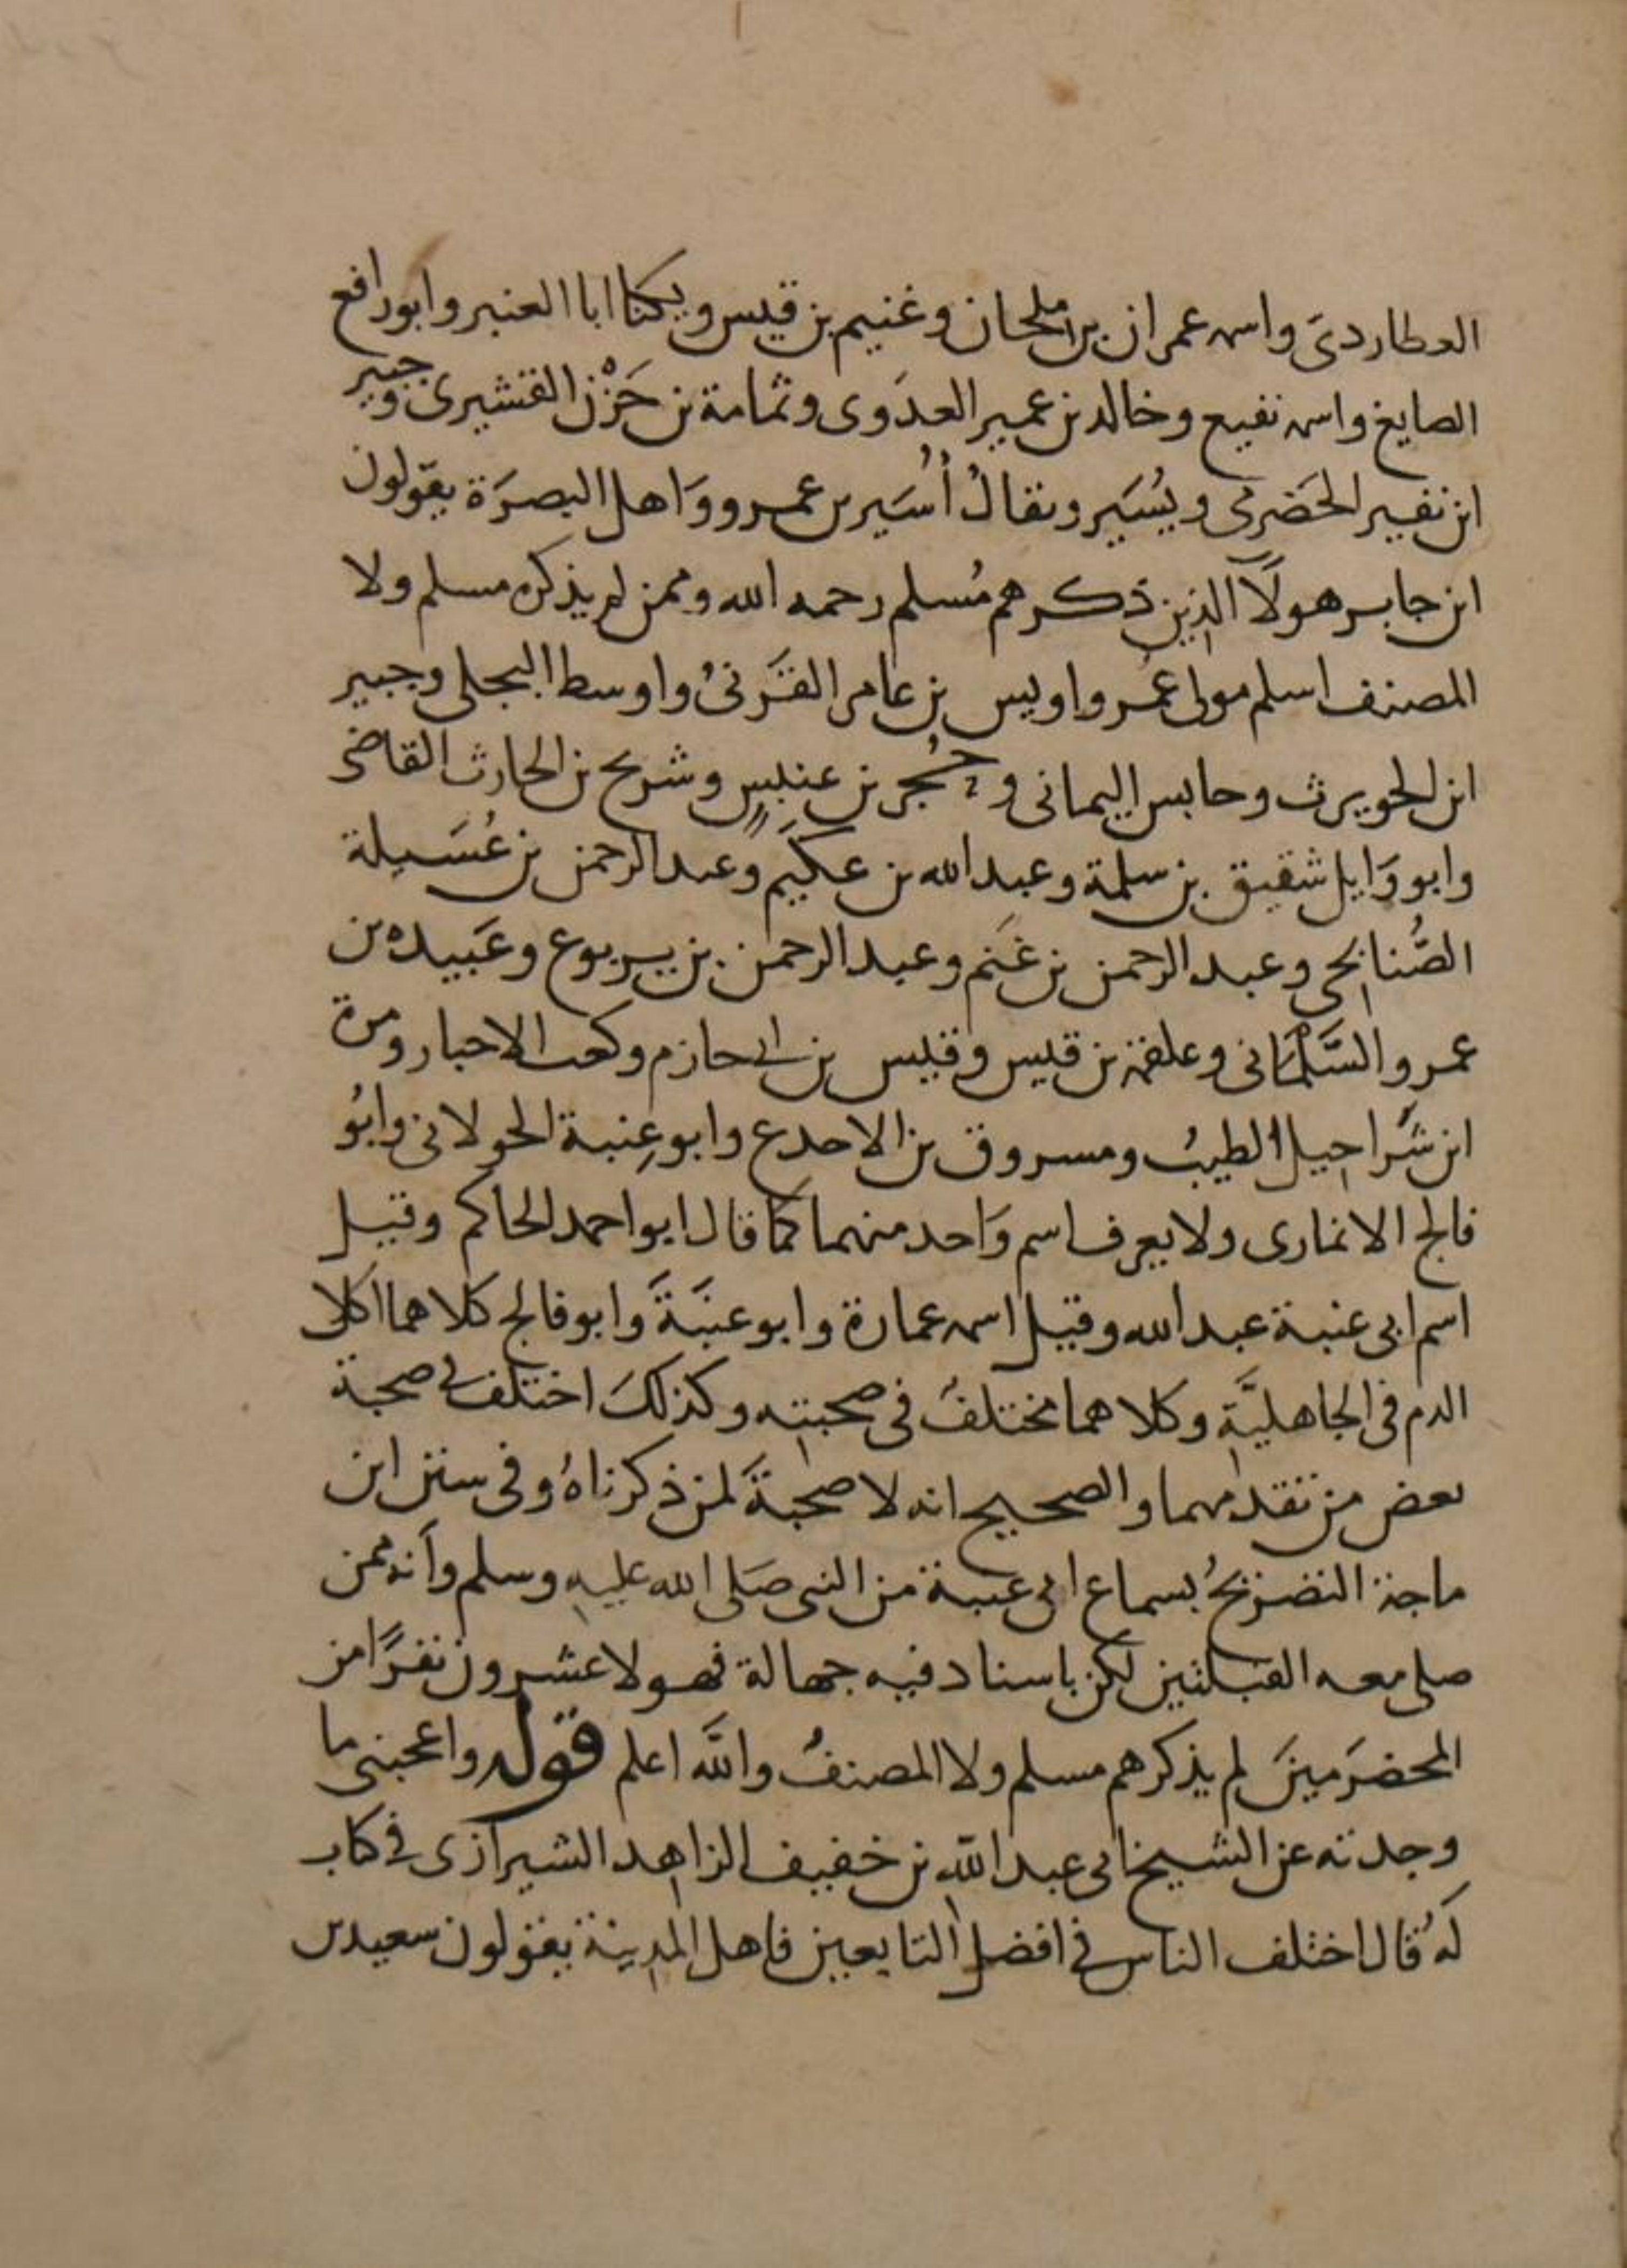 العطاردىَ واسمه عمران بن ملحان وغنيم بن قيس ويكنا ابا العنبر وابو رافع
الصايغ واسمه نفيع وخالد بن عمير العدَوى وثمامة بن حَزْن القشيرى وجبير
ابن نفير الحَضرمى ويُسَير ويقالُ أُسَير بن عمرو وَاهل البصرَة يقولون
ابن جابر هولآ الذين ذكرهم مُسلم رحمه الله وممن لم يذكره مسلم ولا
المصنف اسلم مولى عمر واويس بن عامر القَرنىُ واوسط البجلى وجبير
ابن الحويرث وحابس اليمانى وحُجر بن عنبسٍ وشريح بن الحارث القاضى
وابو وَايل شقيق بن سلمة وعبد الله بن عكَيم وعبد الرحمن بن عُسَيلة
الصُّنابحى وعبد الرحمن بن غَنم وعبد الرحمن بن يربوع وعَبيده بن
عمرو السَّلْمَانى وعلقمة بن قيس وقيس بن ابى حازم وكعب الاحبار ومرة
ابن شَراحيل الطيبُ ومسروق بن الاجدع وابو عِنبة الخولانى وابُو
فالج الانمارى ولا يعرف اسم وَاحد منهما كمَا قال ابو احمد الحاكم وقيل
اسم ابى عنبة عبد الله وقيل اسمه عمارة وابو عنبَةَ وَابو فالج كلاهما اكلا
الدم فى الجاهليَّةِ وكلاهما مختلفُ فى صحبتِه وكذلكَ اختلف فى صحبة
بعض من تقدمهما والصحيح انه لا صحبةَ لمن ذكرناهُ وفى سنن ابن
ماجة التصريحُ بسماع ابى عنبة من النبى صَلى الله عليهِ وسلم وَأنه ممن
صلى معه القبلتين لكن باسناد فيه جهالة فهولا عشرون نفرًا من
المخضرَمينَ لم يذكرهم مسلم ولا المصنفُ واللَّه اعلم قوله واعجبنى ما
وجدته عن الشيخ ابى عبد اللَّهِ بن خفيف الزاهد الشيرازى فى كتاب
لَهُ قَال اختلف الناس فى افضل التابعين فاهل المدينة يقولون سعيد بن